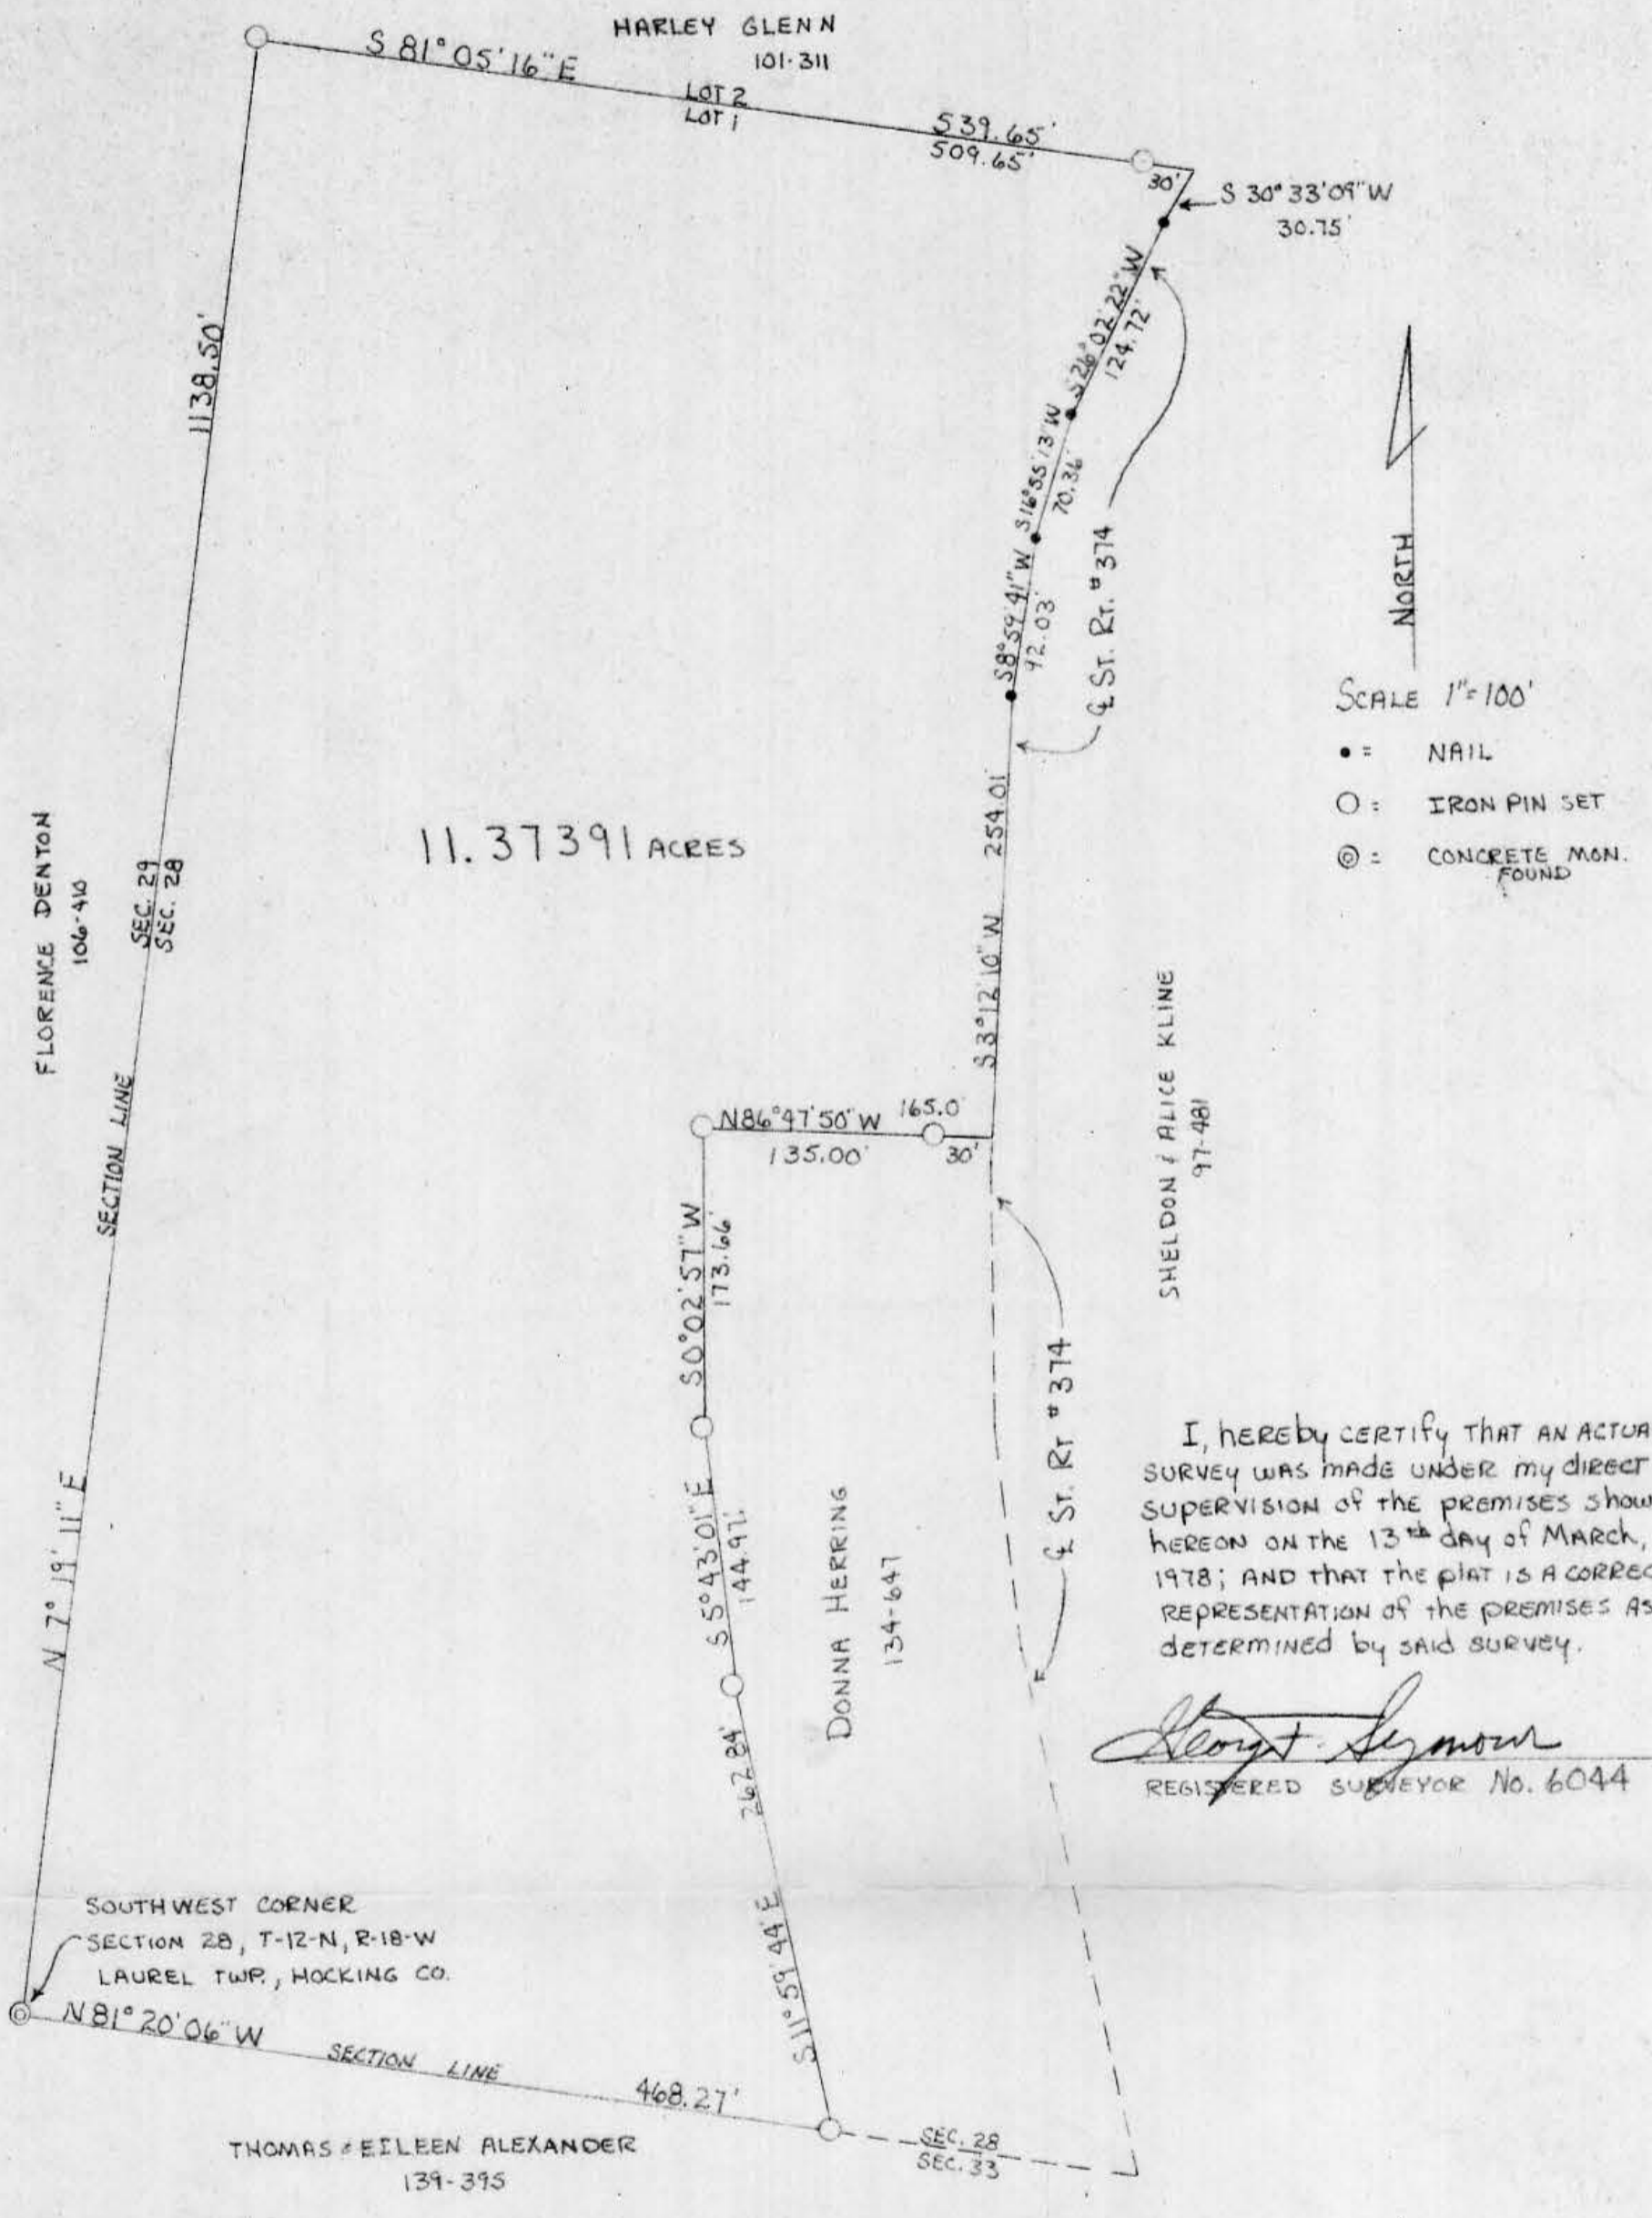 HARLEY GLENN
101-311
S 81° 05' 16" E
LOT 2
LOT 1
539.65'
509.65'
30'
S 30° 33' 09" W
30.75'
1138.50'
S 26° 02' 22" W
124.72'
S 16° 55' 13" W
70.36'
S 8° 59' 41" W
92.03'
℄ ST. RT. #374
NORTH
SCALE 1"=100'
• = NAIL
○ = IRON PIN SET
◎ = CONCRETE MON.
FOUND
254.01'
S 3° 12' 10" W
11.37391 ACRES
FLORENCE DENTON
SEC. 29
SEC. 28
SECTION LINE
N 7° 19' 11" E
SHELDON & ALICE KLINE
97-481
N 86° 47' 50" W
165.0'
135.00'
30'
S 0° 02' 57" W
173.66'
S 5° 43' 01" E
144.97'
DONNA HERRING
134-647
℄ ST. RT #374
262.84'
S 11° 59' 44" E
I, hEREby CERTIfy THAT AN ACTUA
SURVEY WAS MADE UNDER my diRECT
SUPERVISION of THE PREMISES Show
hEREON ON THE 13th dAy of MARCh,
1978; AND THAT THE plAT IS A CORREC
REPRESENTATION of the pREMISES AS
dETERMINEd by SAId SURVEY.
George F. Seymour
REGISTERED SURVEYOR No. 6044
SOUTHWEST CORNER
SECTION 28, T-12-N, R-18-W
LAUREL TWP., HOCKING CO.
N 81° 20' 06" W
SECTION LINE
468.27'
THOMAS & EILEEN ALEXANDER
139-395
SEC. 28
SEC. 33